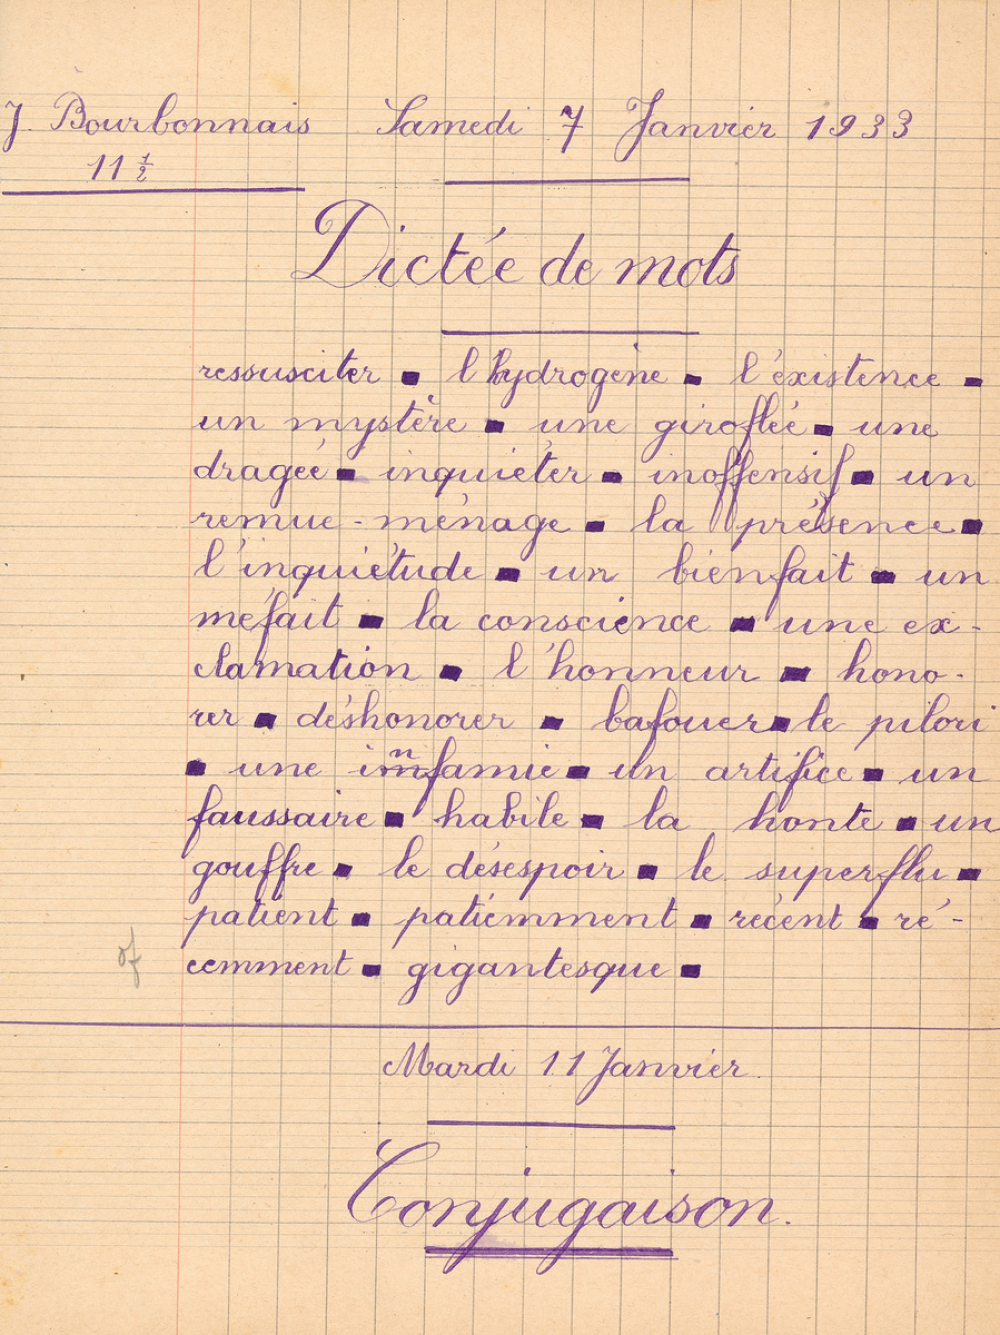 J. Bourbonnais Samedi 7 Janvier 1933
11 ½
Dictée de mots
ressusciter ▪ l'hydrogène ▪ l'éxistence ▪
un mystère ▪ une giroflée ▪ une
dragée ▪ inquiéter ▪ inoffensif ▪ un
remue-ménage ▪ la présence ▪
l'inquiétude ▪ un bienfait ▪ un
méfait ▪ la conscience ▪ une ex-
clamation ▪ l'honneur ▪ hono-
rer ▪ déshonorer ▪ bafouer ▪ le pilori
▪ une infamie ▪ un artifice ▪ un
faussaire ▪ habile ▪ la honte ▪ un
gouffre ▪ le désespoir ▪ le superflu ▪
patient ▪ patiemment ▪ récent ▪ ré-
cemment ▪ gigantesque ▪
Mardi 11 Janvier
Conjugaison.